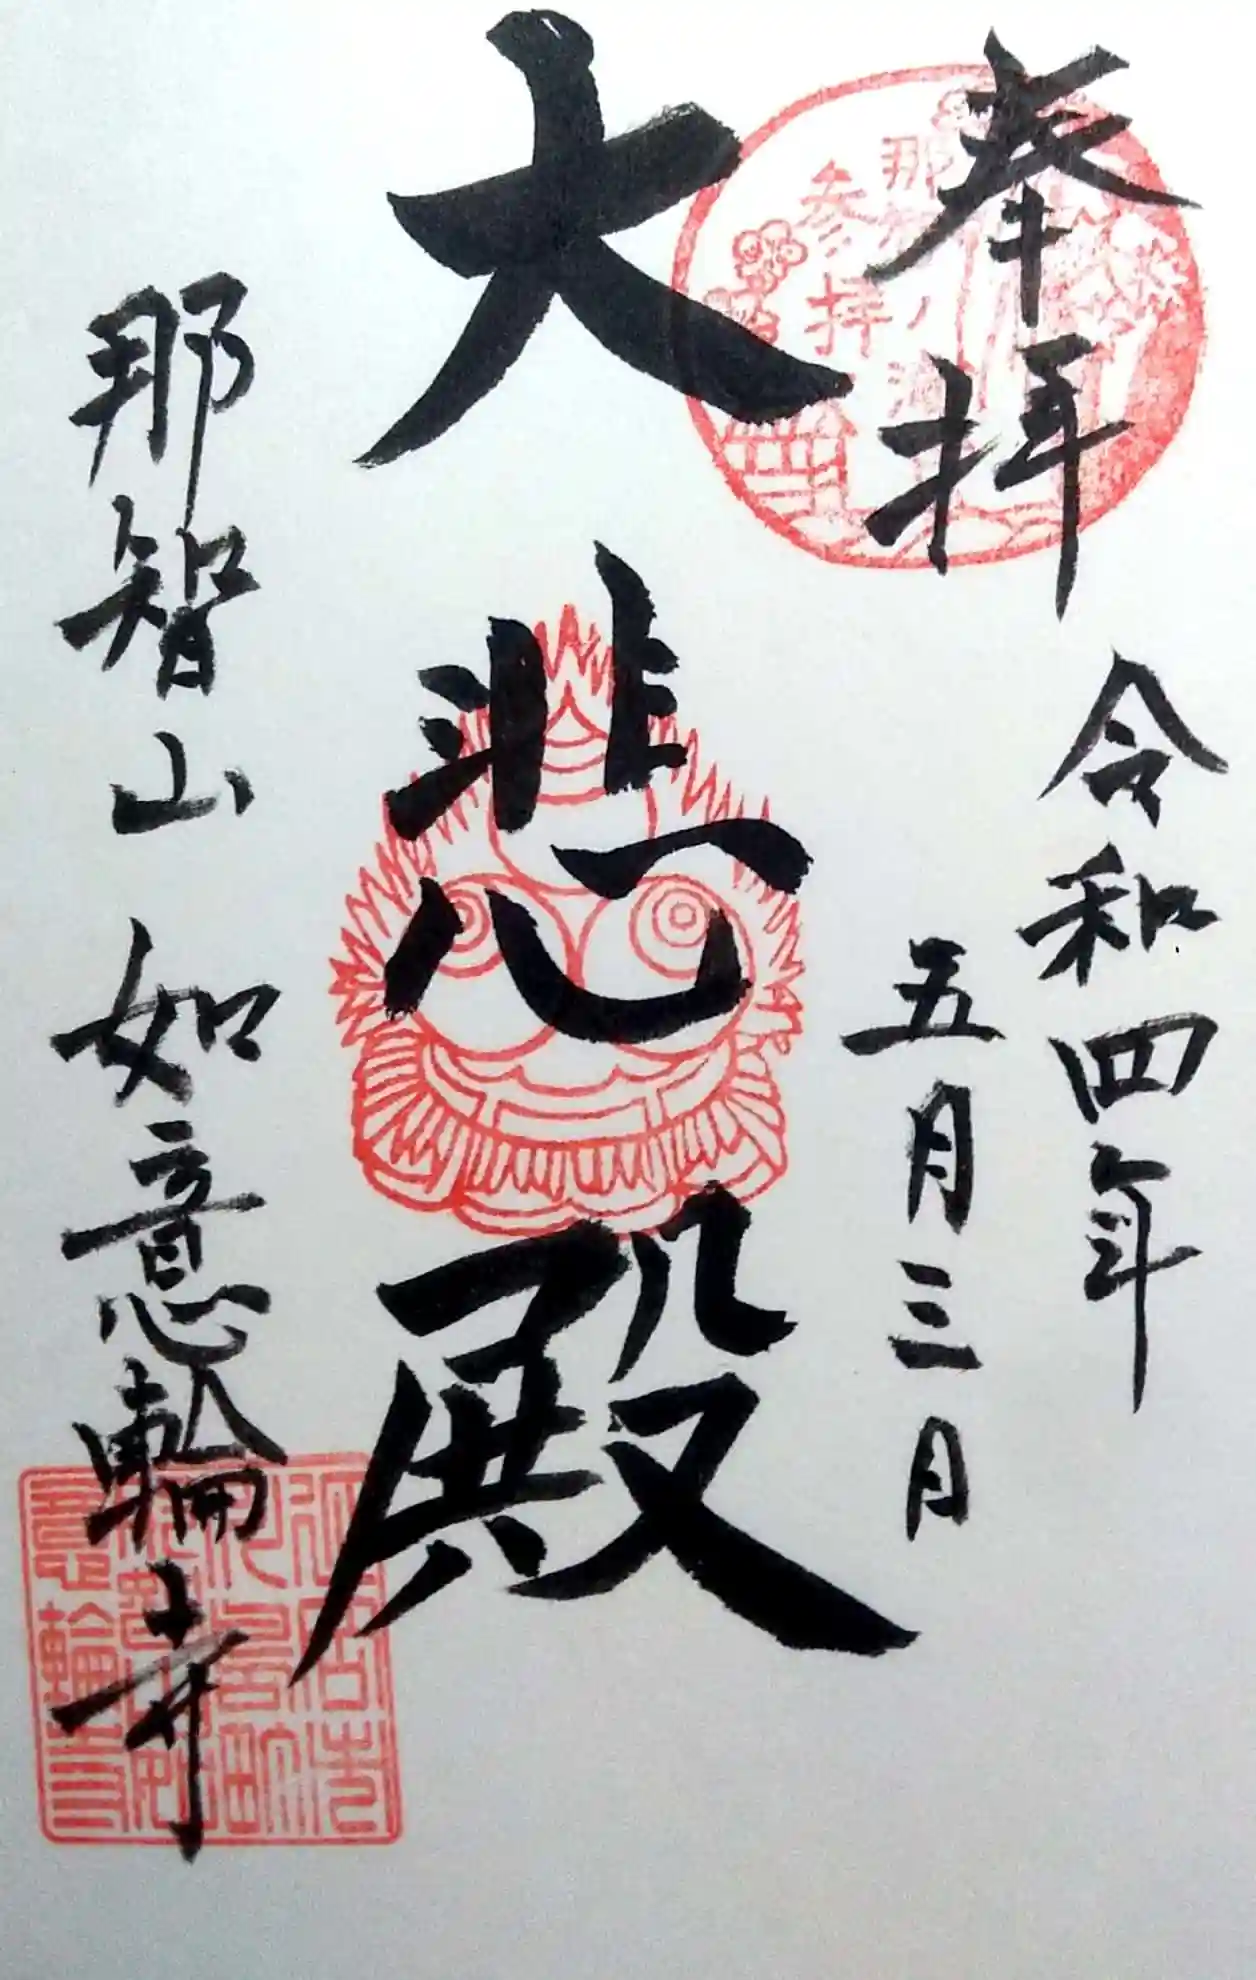 奉拝
令和四年
五月三月
大悲殿
那智山 如意輪寺
那智
参拝